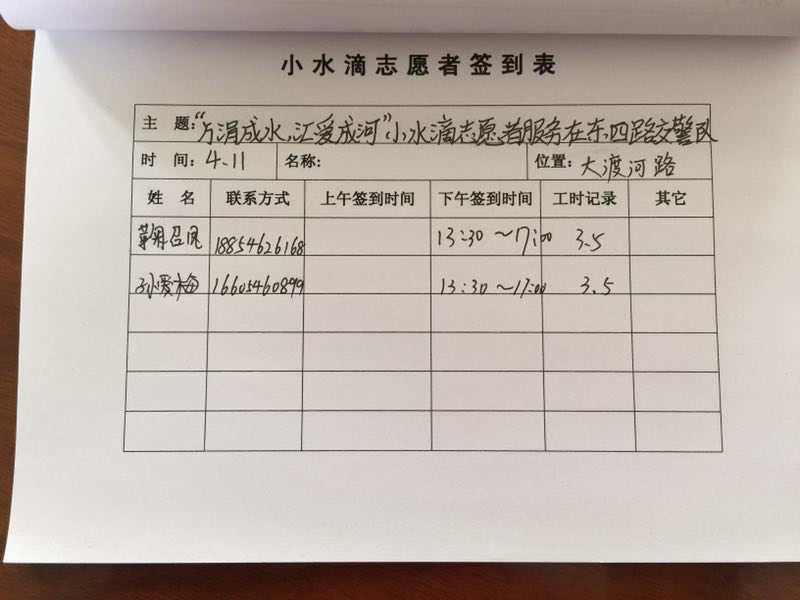 小水滴志愿者签到表
主 题:“方涓成水,汇爱成河”小水滴志愿者服务在东四路交警队
时 间:4.11 名称: 位置:大渡河路
姓 名 联系方式 上午签到时间 下午签到时间 工时记录 其它
18854626168 13:30～17:00 3.5
孙爱梅 16605460899 13:30～17:00 3.5